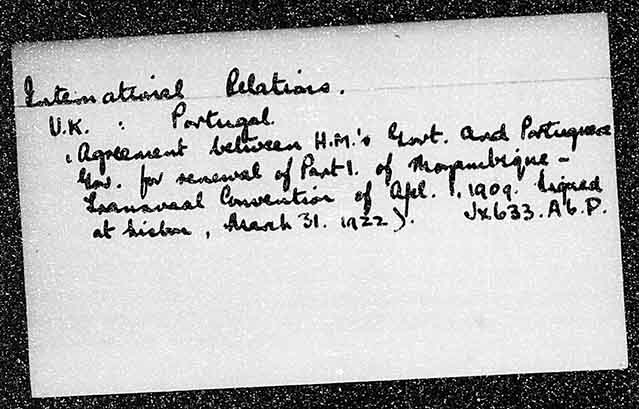 International Relations.
U.K. : Portugal.
(Agreement between H.M.'s Govt. and Portuguese
Gov. for renewal of Part I. of Mozambique -
Transvaal Convention of Apl. 1, 1909. Signed
at Lisbon, March 31. 1922). Jx633.A6.P.